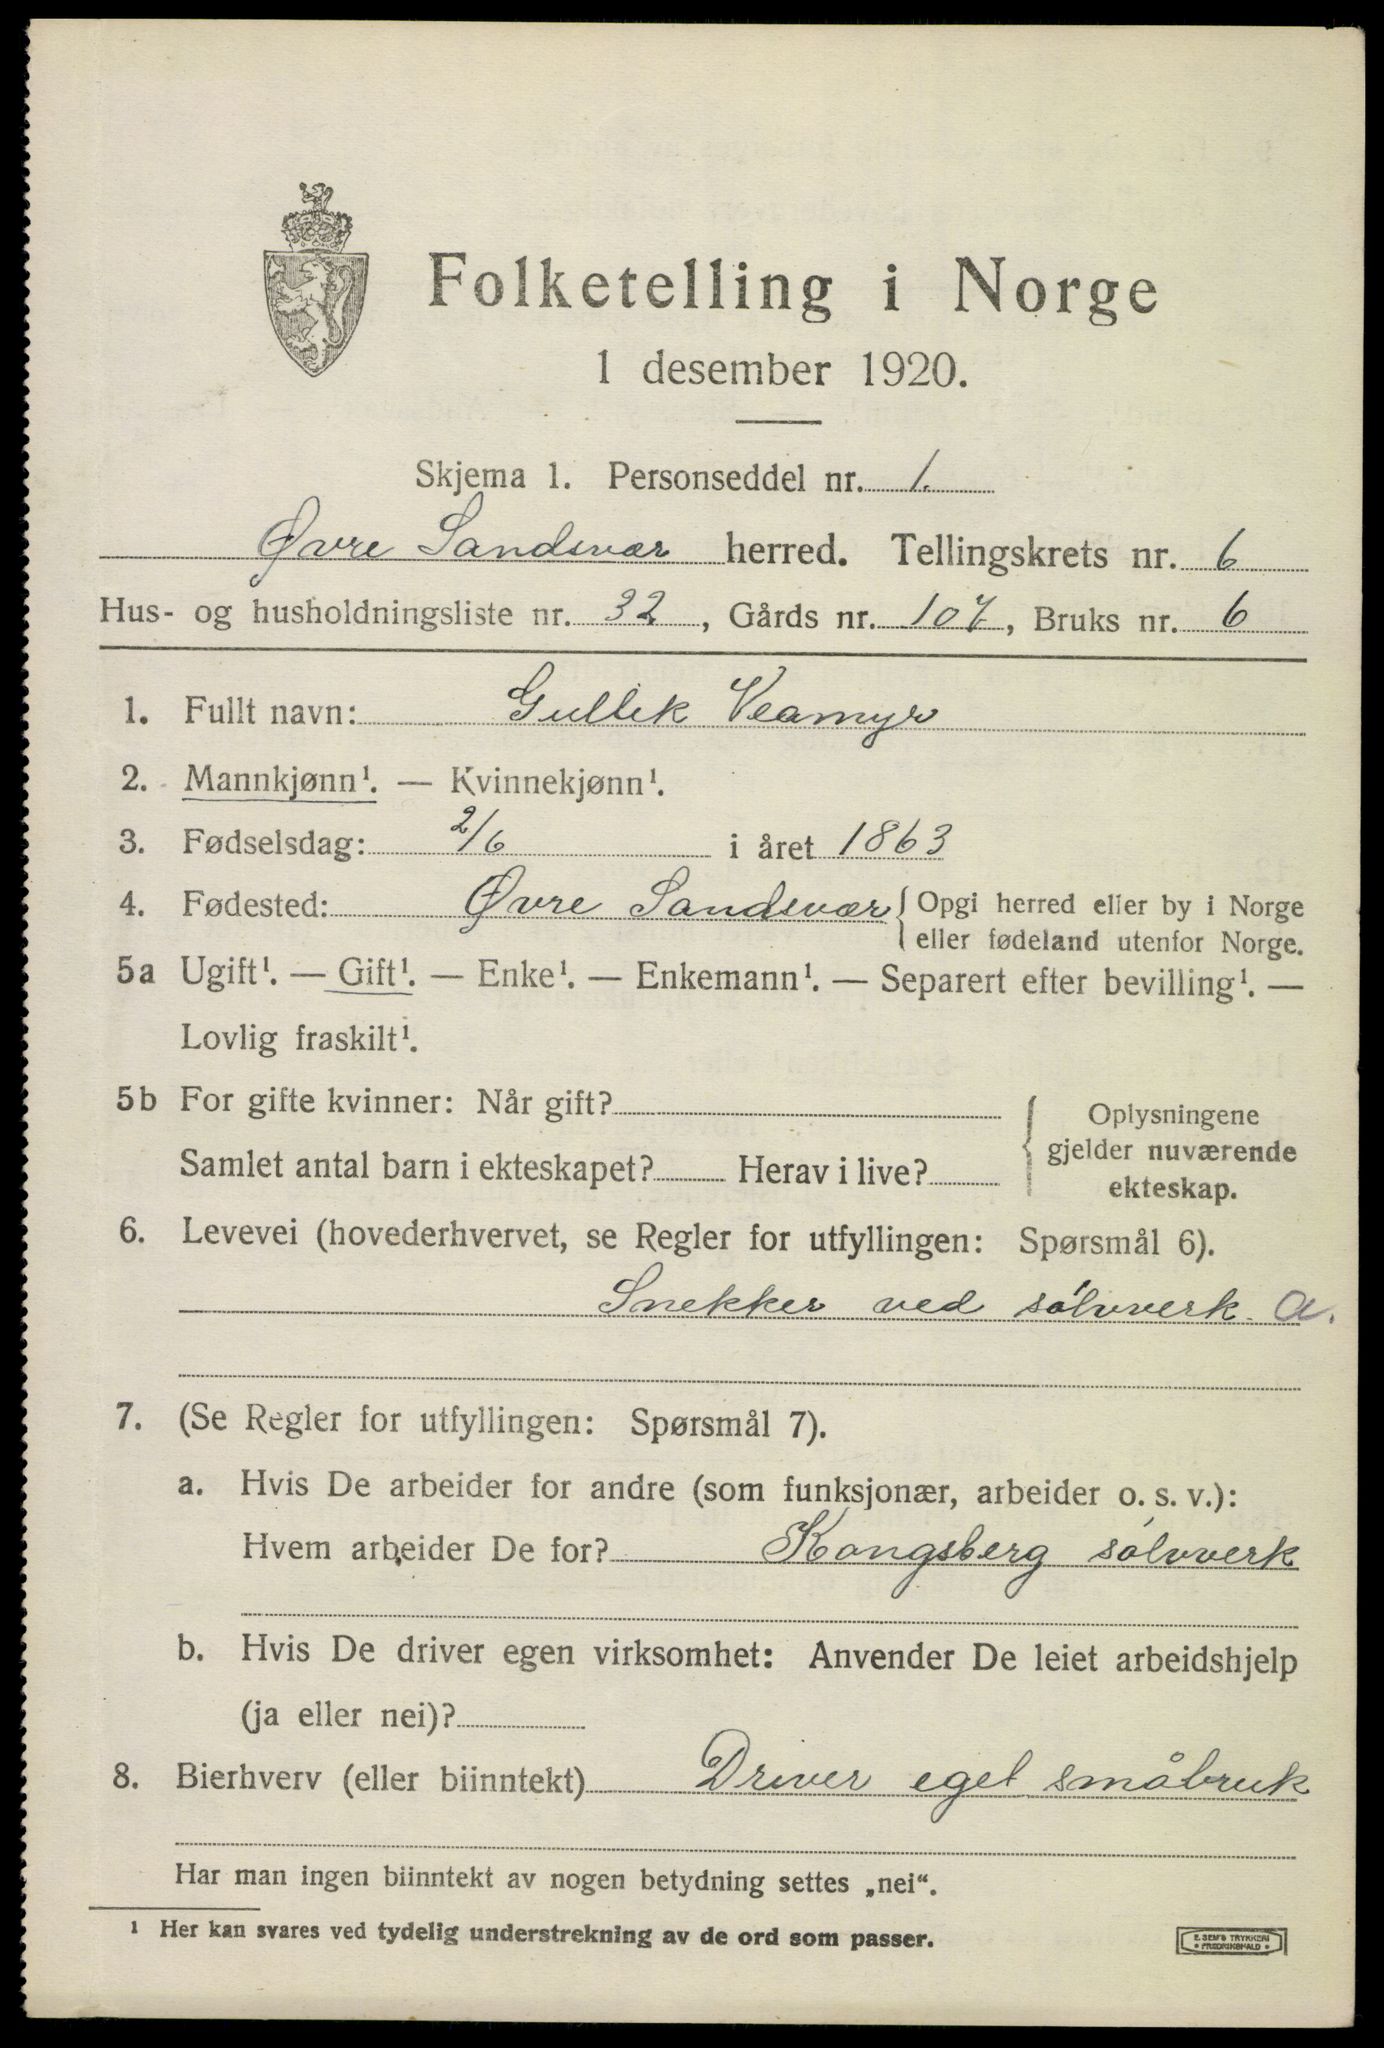 Folketelling i Norge
1 desember 1920.
Skjema 1. Personseddel nr. 1.
Øvre Sandsvær herred. Tellingskrets nr. 6
Hus- og husholdningsliste nr. 32, Gårds nr. 107, Bruks nr. 6
1. Fullt navn: Gullik Veamyr
2. Mannkjønn¹. — Kvinnekjønn¹.
3. Fødselsdag: 2/6 i året 1863
4. Fødested: Øvre Sandsvær { Opgi herred eller by i Norge
eller fødeland utenfor Norge.
5a Ugift¹. — Gift¹. — Enke¹. — Enkemann¹. — Separert efter bevilling¹. —
Lovlig fraskilt¹.
5b For gifte kvinner: Når gift?
Samlet antal barn i ekteskapet? Herav i live?
Oplysningene
gjelder nuværende
ekteskap.
6. Levevei (hovederhvervet, se Regler for utfyllingen: Spørsmål 6).
Snekker ved sølvverk. a.
7. (Se Regler for utfyllingen: Spørsmål 7).
a. Hvis De arbeider for andre (som funksjonær, arbeider o. s. v.):
Hvem arbeider De for? Kongsberg sølvverk
b. Hvis De driver egen virksomhet: Anvender De leiet arbeidshjelp
(ja eller nei)?
8. Bierhverv (eller biinntekt) Driver eget småbruk
Har man ingen biinntekt av nogen betydning settes „nei“.
¹ Her kan svares ved tydelig understrekning av de ord som passer.
E. SEM'S TRYKKERI
• FREDRIKSHALD •